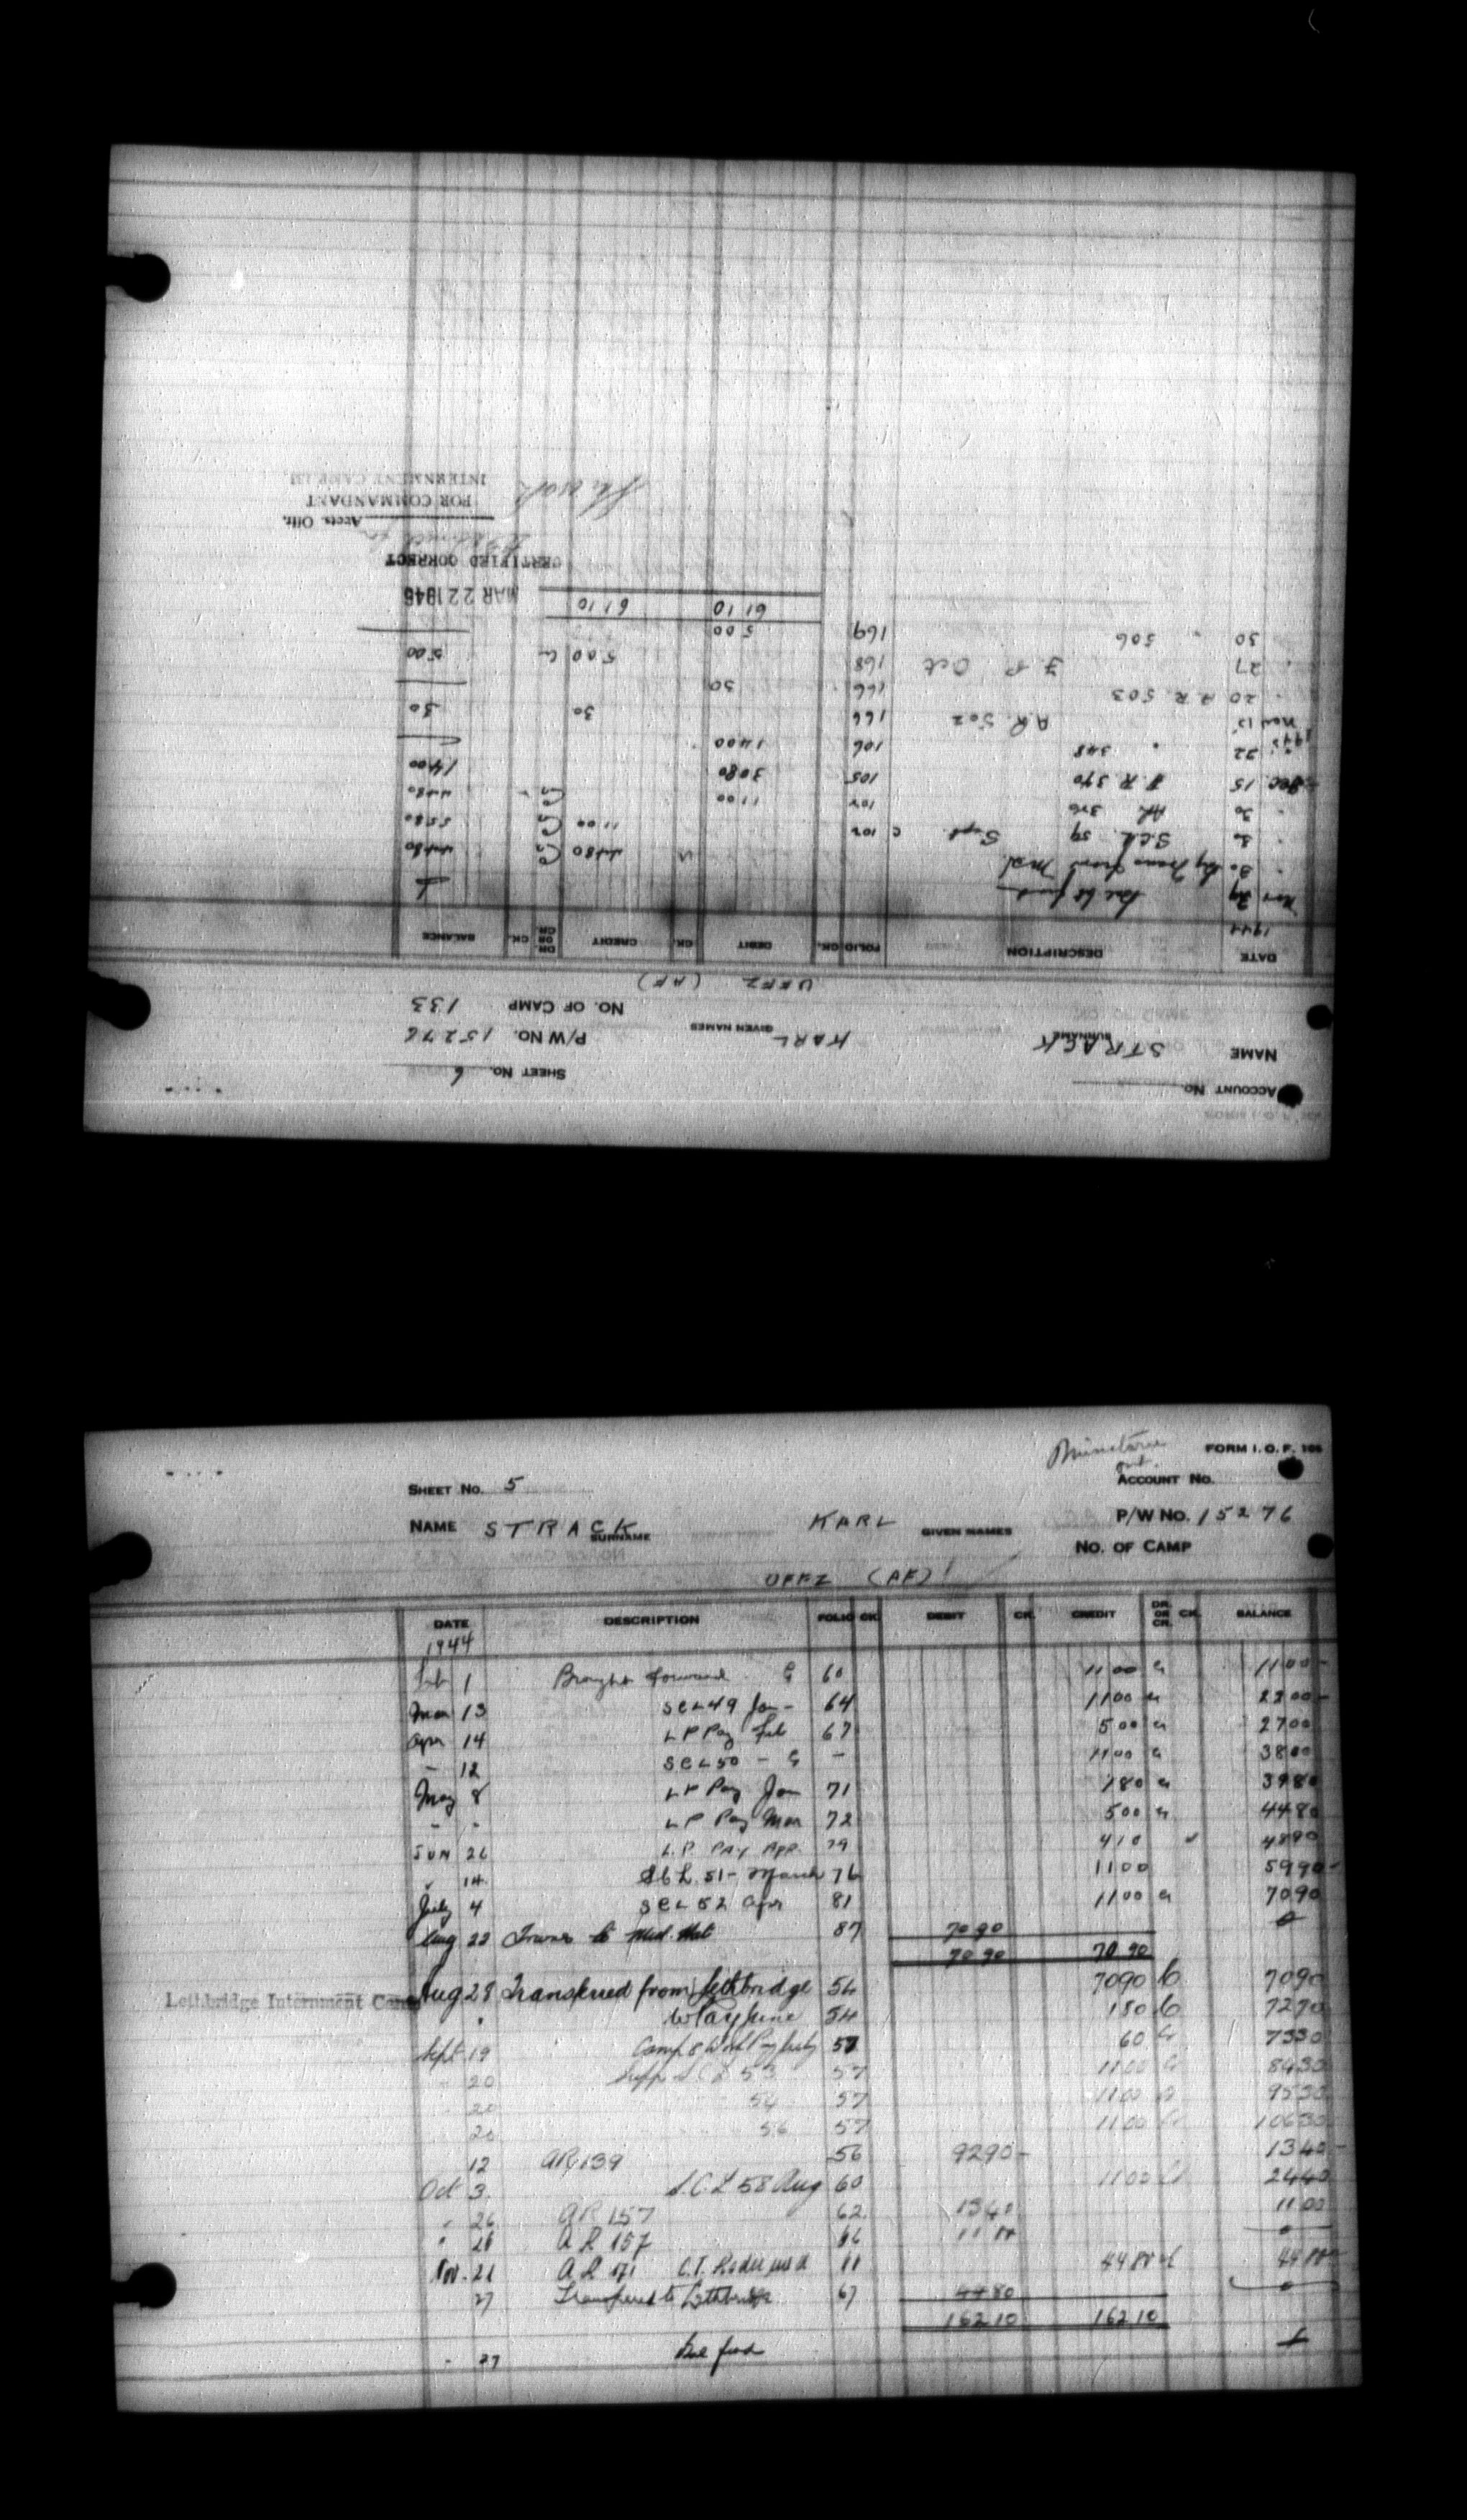 FORM I. O. F. 106
ACCOUNT NO.
SHEET NO. 6
NAME STRACK SURNAME KARL GIVEN NAMES P/W NO. 15276
NO. OF CAMP 133
UFFZ (AF)
DATE DESCRIPTION FOLIO CK. DEBIT CK. CREDIT DR. OR CR. CK. BALANCE
1944
Nov 29 Bal fwd
" 30 By Trans from Med 4480 Cr 4480
" 30 S.C.L. 59 Sept. C 102 1100 Cr 5580
" 30 AR 376 102 1100 Cr 4480
Dec 15 A R 390 105 3080 1400
" 22 " 348 106 1400
1945
Nov 15 A.R. 502 166 30 30
" 20 A R 503 166 30
" 27 F. P. Oct 168 500 Cr 500
30 " 506 169 500
61 10 61 10
MAR 22 1946
CERTIFIED CORRECT
Accts. Offr.
FOR COMMANDANT
INTERNMENT CAMP
FORM I. O. F. 106
SHEET NO. 5 ACCOUNT NO.
NAME STRACK SURNAME KARL GIVEN NAMES P/W NO. 15276
NO. OF CAMP
UFFZ (AF)
DATE DESCRIPTION FOLIO CK. DEBIT CK. CREDIT DR. OR CR. CK. BALANCE
1944
Feb 1 Brought forward G 60 1100 Cr 1100
Mar 13 SCL 49 Jan - 64 1100 Cr 2200
Apr 14 L P Pay Feb 67 500 Cr 2700
- 12 SCL 50 - G - 1100 Cr 3800
May 8 L P Pay Jan 71 180 Cr 3980
- - L P Pay Mar 72 500 Cr 4480
JUN 26 L.P. PAY APR. 79 410 4890
" 14 SCL 51 - March 76 1100 5990
July 4 SCL 52 Apr 81 1100 Cr 7090
Aug 22 Trans to Med. Hat 87 7090 0
70 90 70 90
Lethbridge Internment Camp
Aug 28 Transferred from Lethbridge 54 7090 Cr 7090
" W Pay June 54 180 Cr 7270
Sept 19 Camp & Work Pay July 57 60 Cr 7330
20 Supp S C L 53 57 1100 Cr 8430
20 54 57 1100 Cr 9530
20 56 57 1100 Cr 10630
12 AR 139 56 9290 1340
Oct 3 S.C.L 58 Aug 60 1100 Cr 2440
" 26 A R 157 62 1340 1100
" 26 A R 157 1100 0
Nov. 21 A R 171 4480 Cr 4480
27 Transferred to Lethbridge 67 4480 0
162 10 162 10
- 27 Bal fwd